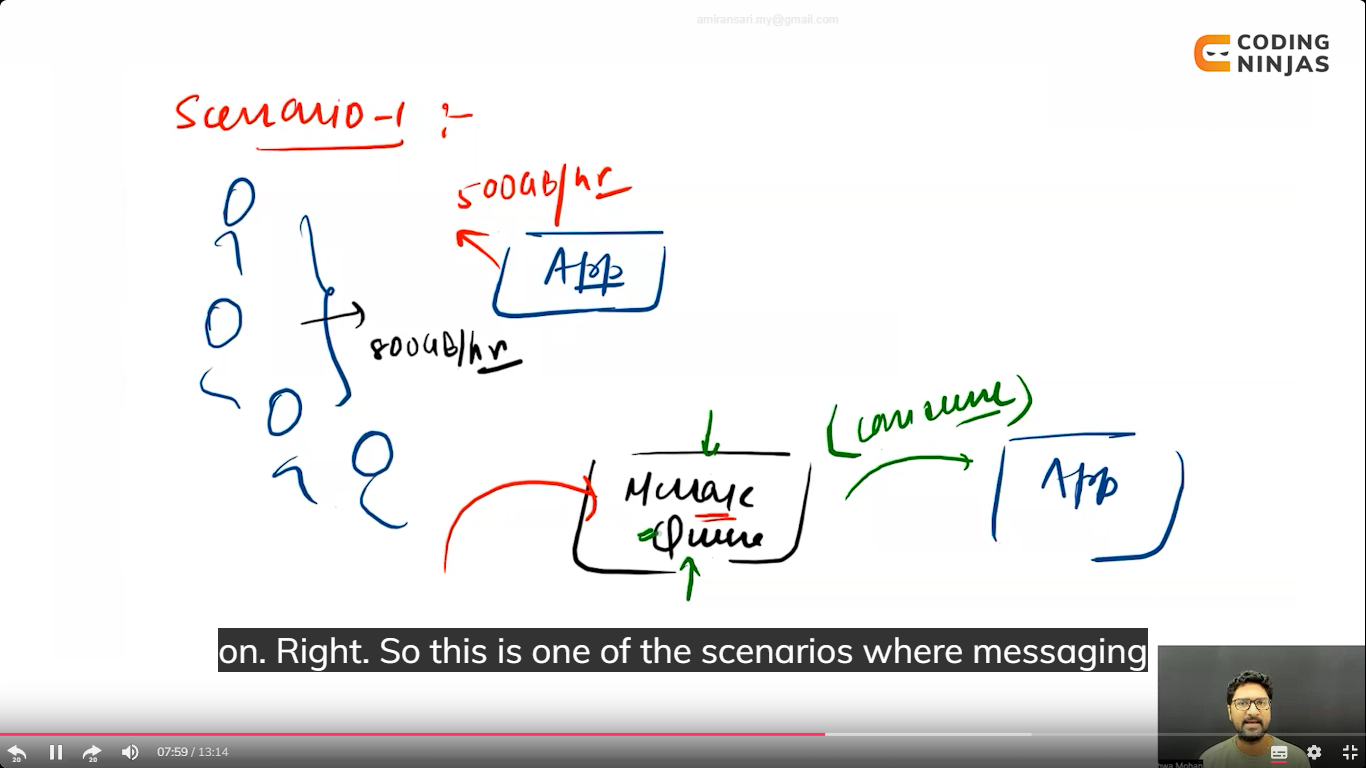 amiransari.my@gmail.com
CODING
NINJAS
Scenario-1 :-
500GB/hr
App
800GB/hr
(consume)
Message
Queue
App
on. Right. So this is one of the scenarios where messaging
20
20
07:59 / 13:14